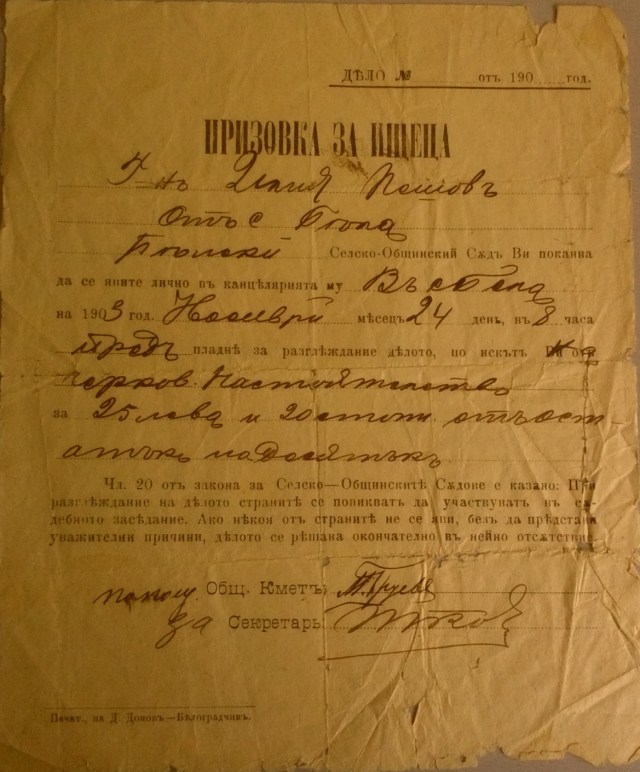 ДѢЛО № отъ 190 год.
ПРИЗОВКА ЗА ИЩЕЦА
Г-нъ Илия Пешовъ
Отъ с
Селско-Общинский Сѫдъ Ви поканва
да се явите лично въ канцѣлярията му Въ
на 1903 год. Ноемврий мѣсецъ 24 день, въ 8 часа
предъ пладнѣ за разглѣждание дѣлото, по искътъ на
черков. Настоятелство
за 25 лева и 20 стоти. отъ ост-
атъкъ
Чл. 20 отъ закона за Селско—Общинскитѣ Сѫдове е казано: При
разглѣждание на дѣлото странитѣ се повикватъ да участвуватъ въ сѫ-
дебното засѣдание. Ако нѣкоя отъ странитѣ не се яви, безъ да прѣдстави
уважителни причини, дѣлото се рѣшава окончателно въ нейно отсѫтствие.
помощ. Общ. Кметъ:
за Секретарь:
Печат. на Д. Доновъ—Бѣлоградчикъ.